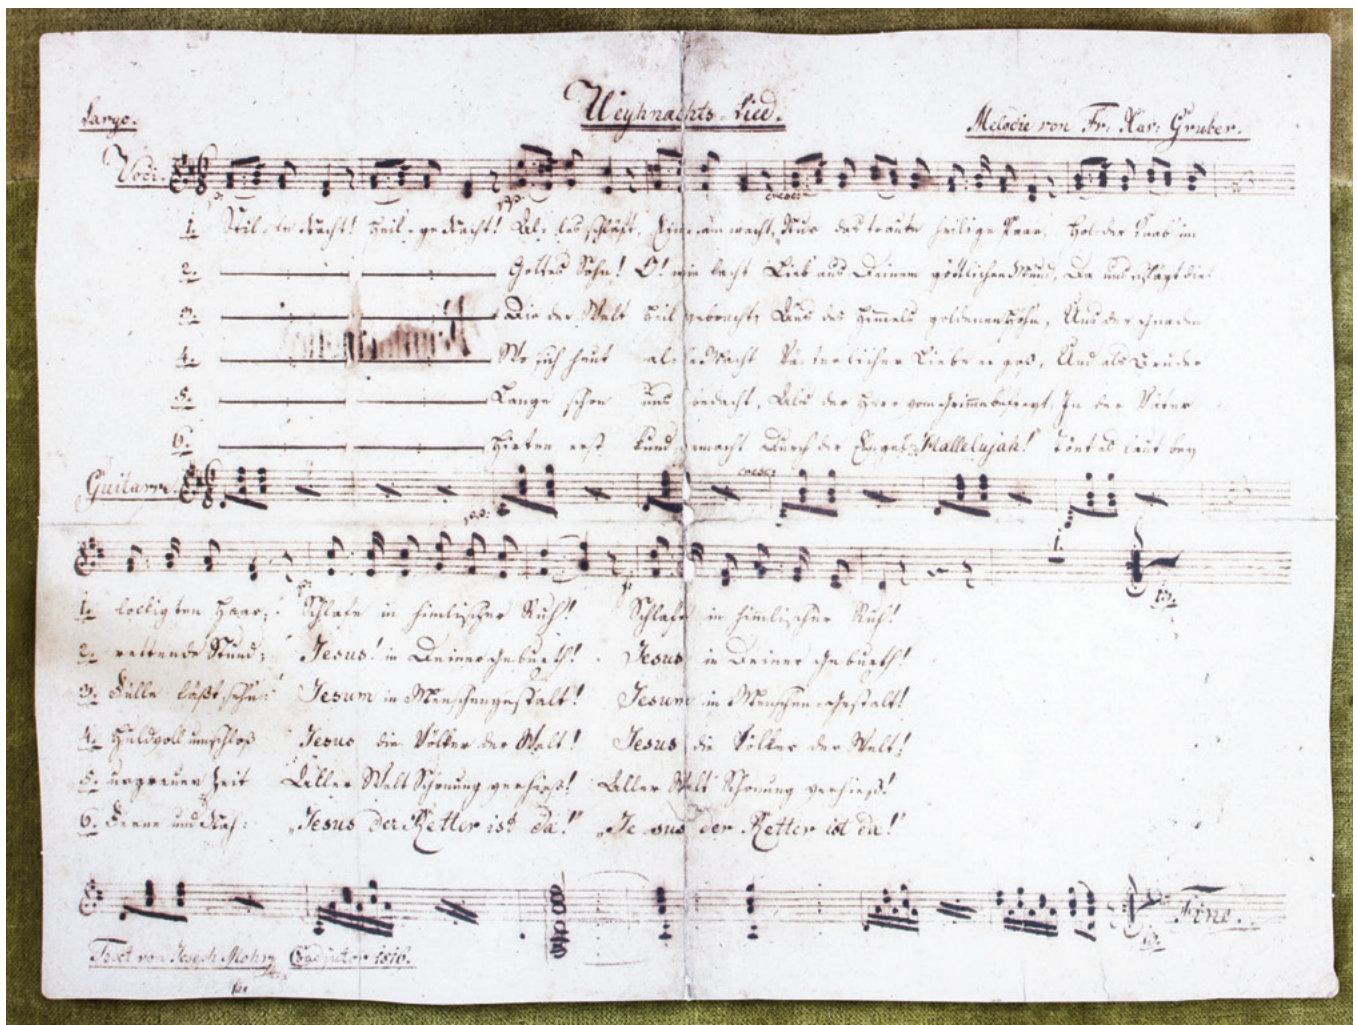 Weyhnachts-Lied.
Largo.
Melodie von Fr: Xav: Gruber.
Voci.
p.
pp.
cresc:
1. Stil-le Nacht! Heil-ge Nacht! Al-les schläft, Einsam wacht, Nur das traute heilige Paar, Holder Knab im
2. Gottes Sohn! O! wie lacht Lieb aus Deinem göttlichen Mund, Da uns schlägt die
3. Die der Welt Heil gebracht; Aus des Himmels goldenen Höhn, Uns der Gnaden
4. Wo sich heut alle Macht Väterlicher Liebe ergoß, Und als Bruder
5. Lange schon uns bedacht, Als der Herr vom Grimme befreyt, In der Väter
6. Hirten erst kund gemacht Durch der Engel Hallelujah! Tönt es laut bey
Guitarre
cresc:
pp.
1. lockigten Haar; Schlafe in himlischer Ruh! Schlafe in himlischer Ruh!
2. rettende Stund; Jesus! in Deiner Geburth! Jesus in Deiner Geburth!
3. Fülle läßt sehn: Jesum in Menschengestalt! Jesum in Menschen-Gestalt!
4. Huldvoll umschloß Jesus die Völker der Welt! Jesus die Völker der Welt!
5. urgrauer Zeit Aller Welt Schonung verhieß! Aller Welt Schonung verhieß!
6. Ferne und Nah: „Jesus der Retter ist da!" „Jesus der Retter ist da!"
Fine.
Text von Joseph Mohr Coadjutor 1816.